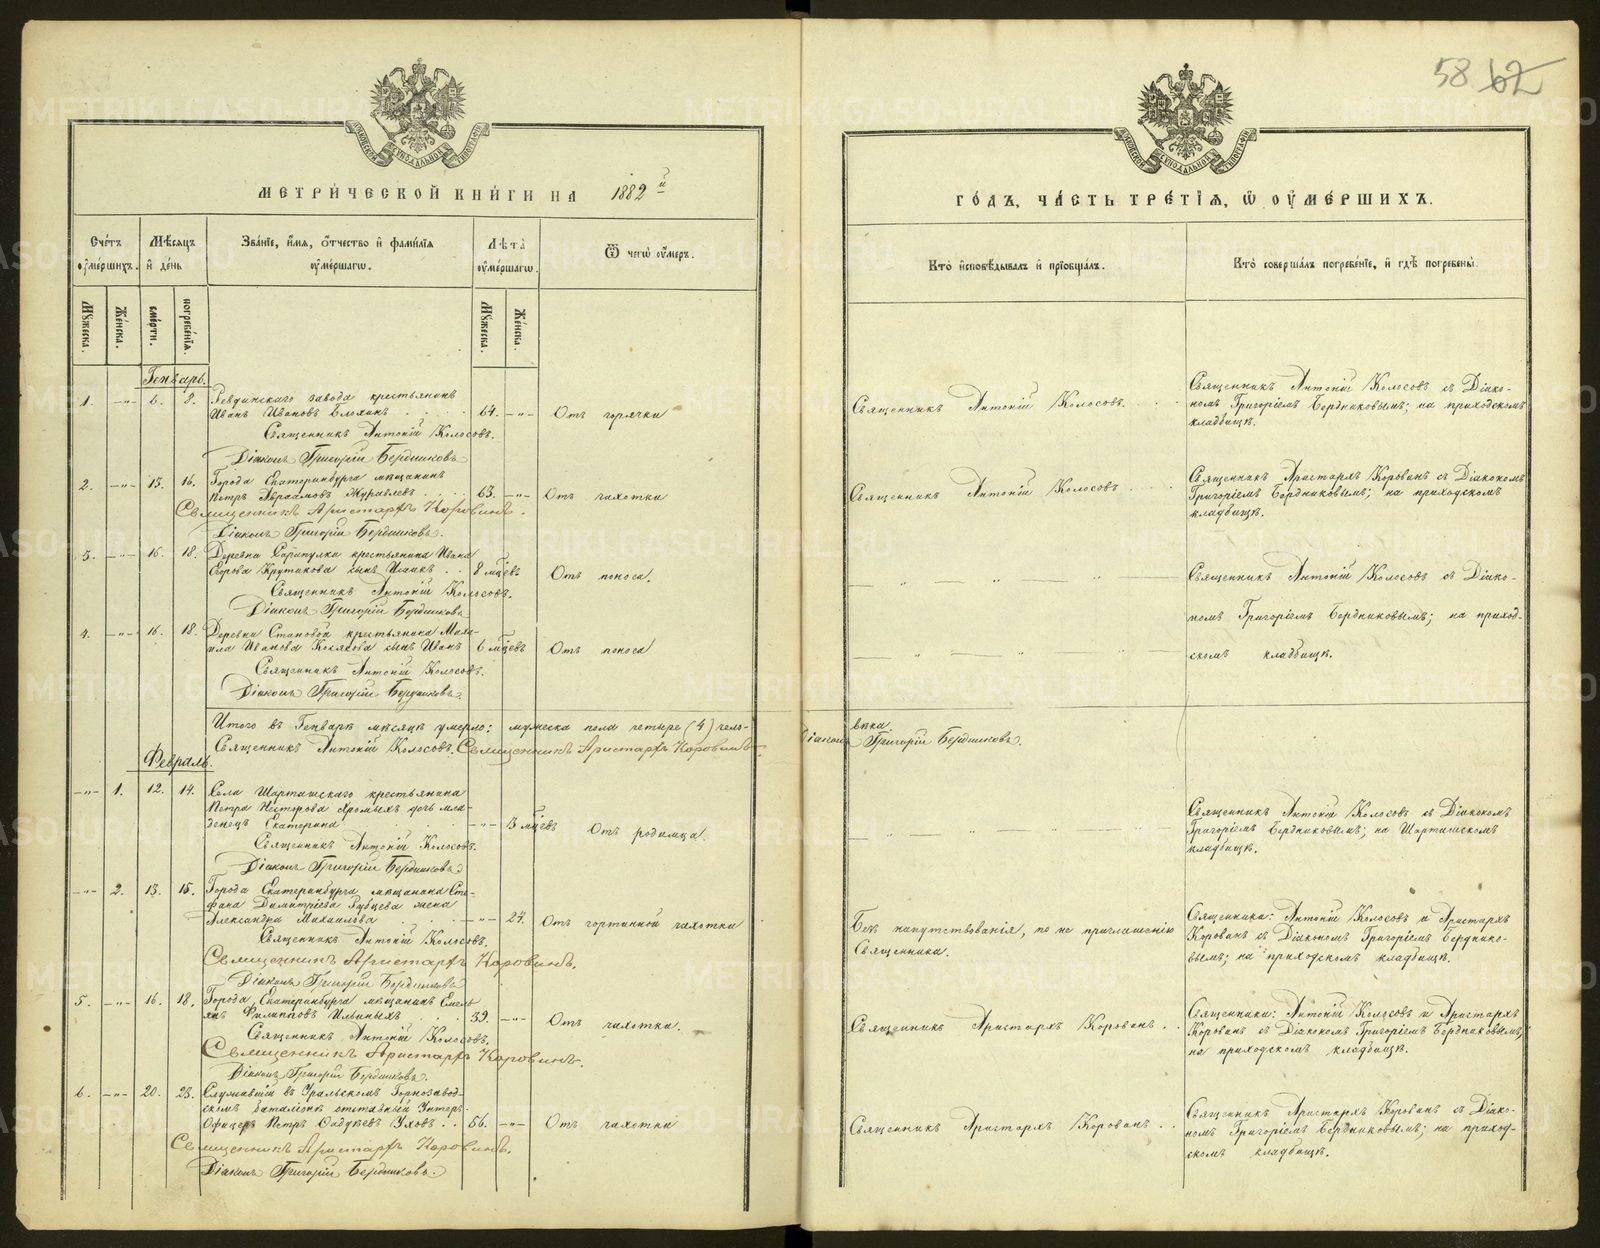 58 62
МЕТРИЧЕСКОЙ КНИГИ НА 1882й
Счетъ умершихъ.
Мѣсяцъ и день
Званіе, имя, отчество и фамилія умершагѡ.
Лѣта умершагѡ.
Ѿ чегѡ умеръ.
Мужеска.
Женска.
смерти.
погребенія.
Мужеска.
Женска.
Генварь.
1. —„— 6. 8. Ревдинскаго завода крестьянинъ
Иванъ Ивановъ 64. —„— Отъ горячки
Священникъ Антоній Колосовъ.
Діаконъ Григорій Бердниковъ
2. —„— 13. 16. Города Екатеринбурга мѣщанинъ
Петръ Авраамовъ Журавлевъ 63. —„— Отъ чахотки
Священникъ Аристархъ Коровинъ.
Діаконъ Григорій Бердниковъ.
3. —„— 16. 18. Деревни Сарапулки крестьянина Ивана
Егорова Крутикова сынъ Исаакъ 8 мѣсяц. Отъ поноса.
Священникъ Антоній Колосовъ.
Діаконъ Григорій Бердниковъ
4. —„— 16. 18. Деревни Становой крестьянина Миха-
ила Иванова сынъ Иванъ 6 мѣсяц. Отъ поноса
Священникъ Антоній Колосовъ.
Діаконъ Григорій Бердниковъ.
Итого въ Генварѣ мѣсяцѣ умерло: мужеска пола четыре (4) чело-
Священникъ Антоній Колосовъ. Священникъ Аристархъ Коровинъ
Февраль.
—„— 1. 12. 14. Села Шарташскаго крестьянина
Петра Несторова Хромыхъ дочь мла-
денецъ Екатерина —„— Отъ родимца.
Священникъ Антоній Колосовъ.
Діаконъ Григорій Бердниковъ
—„— 2. 13. 15. Города Екатеринбурга мѣщанина Сте-
фана Димитріева Рубцева жена
Александра Михаилова —„— 24. Отъ гортанной чахотки
Священникъ Антоній Колосовъ.
Священникъ Аристархъ Коровинъ.
Діаконъ Григорій Бердниковъ
5. —„— 16. 18. Города Екатеринбурга мѣщанинъ Емель-
янъ Филипповъ Ильиныхъ 39. —„— Отъ чахотки.
Священникъ Антоній Колосовъ.
Священникъ Аристархъ Коровинъ.
Діаконъ Григорій Бердниковъ.
6. —„— 20. 23. Служившій въ Уральскомъ Горнозавод-
скомъ баталіонѣ отставный Унтеръ-
Офицеръ Петръ 56. —„— Отъ чахотки
Священникъ Аристархъ Коровинъ.
Діаконъ Григорій Бердниковъ.
ГОДЪ, ЧАСТЬ ТРЕТІЯ, Ѿ УМЕРШИХЪ.
Кто исповѣдывалъ и пріобщалъ.
Кто совершалъ погребеніе, и гдѣ погребены.
Священникъ Антоній Колосовъ.
Священникъ Антоній Колосовъ съ Діако-
номъ Григоріемъ Бердниковымъ; на приходскомъ
кладбищѣ.
Священникъ Антоній Колосовъ
Священникъ Аристархъ Коровинъ съ Діакономъ
Григоріемъ Бердниковымъ; на приходскомъ
кладбищѣ.
Священникъ Антоній Колосовъ съ Діако-
номъ Григоріемъ Бердниковымъ; на приход-
скомъ кладбищѣ.
вѣка.
Діаконъ Григорій Бердниковъ.
Священникъ Антоній Колосовъ съ Діакономъ
Григоріемъ Бердниковымъ; на Шарташскомъ
кладбищѣ.
Безъ напутствованія, по не приглашенію
Священника.
Священники: Антоній Колосовъ и Аристархъ
Коровинъ съ Діакономъ Григоріемъ Бердники-
вымъ; на приходскомъ кладбищѣ.
Священникъ Аристархъ Коровинъ.
Священники: Антоній Колосовъ и Аристархъ
Коровинъ съ Діакономъ Григоріемъ Бердниковымъ;
на приходскомъ кладбищѣ.
Священникъ Аристархъ Коровинъ
Священникъ Аристархъ Коровинъ съ Діако-
номъ Григоріемъ Бердниковымъ; на приход-
скомъ кладбищѣ.